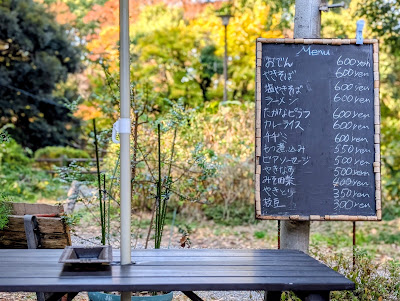 Menu
おでん 600yen
やきそば 600yen
塩やきそば 600yen
ラーメン 600yen
たかなピラフ 600yen
カレーライス 600yen
チヂミ 600yen
もつ煮込み 550yen
ピアソーセージ 500yen
やきなす 500yen
みそ田楽 400yen
やきとり 350yen
枝豆 300yen